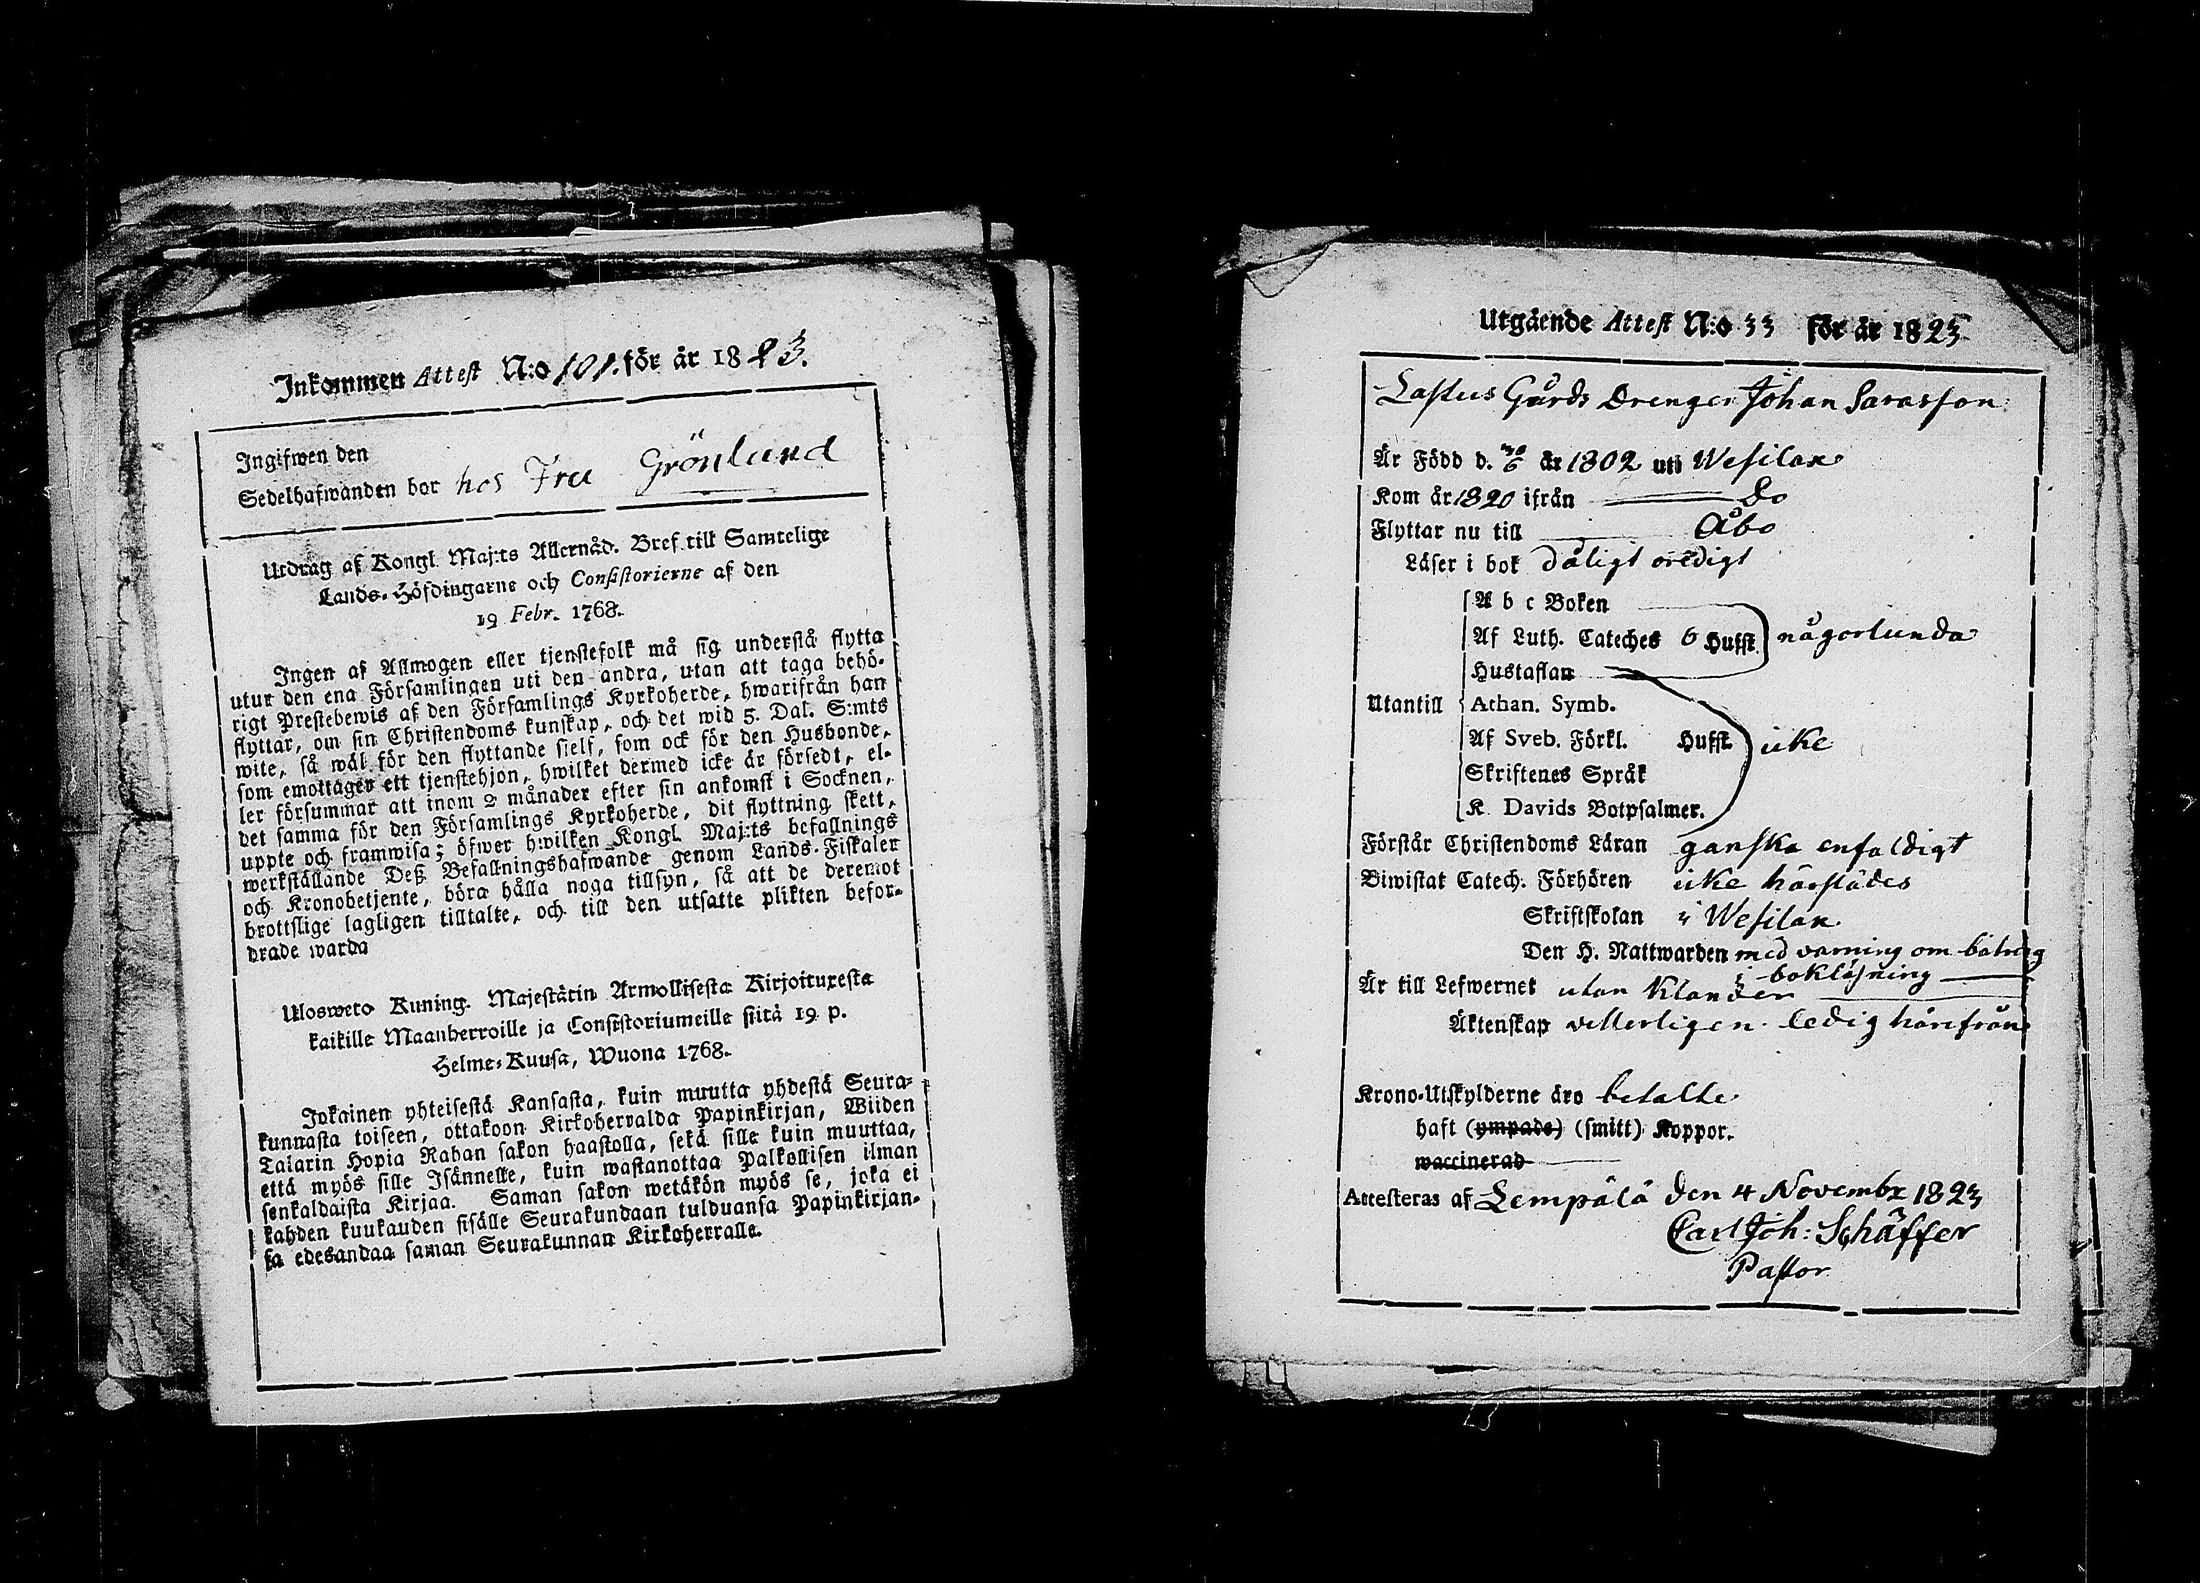 Inkommen Attest N:o 101. för år 1823.
Ingifwen den
Sedelhafwanden bor hos Fru Grönlund
Utdrag af Kongl. Maj:ts Allernåd. Bref till Samtelige
Lands-Höfdingarne och Consistorierne af den
19 Febr. 1768.
Ingen af Allmogen eller tjenstefolk må sig understå flytta
utur den ena Församlingen uti den andra, utan att taga behö-
rigt Prestebewis af den Församlings Kyrkoherde, hwarifrån han
flyttar, om sin Christendoms kunskap, och det wid 5. Dal. S:mts
wite, så wäl för den flyttande sielf, som ock för den Husbonde,
som emottager ett tjenstehjon, hwilket dermed icke är försedt, el-
ler försummar att inom 2 månader efter sin ankomst i Socknen,
det samma för den Församlings Kyrkoherde, dit flyttning skett,
uppte och framwisa; öfwer hwilken Kongl. Maj:ts befallnings
werkställande Deß Befallningshafwande genom Lands-Fiskaler
och Kronobetjente, böra hålla noga tillsyn, så att de deremot
brottslige lagligen tilltalte, och till den utsatte plikten befor-
drade warda
Ulosweto Kuning. Majestätin Armollisesta Kirjoituxesta
kaikille Maanherroille ja Consistoriumeille siitä 19 p.
Helme-Kuusa, Wuona 1768.
Jokainen yhteisestä Kansasta, kuin muutta yhdestä Seura-
kunnasta toiseen, ottakoon Kirkoherralda Papinkirjan, Wiiden
Talarin Hopia Rahan sakon haastolla, sekä sille kuin muuttaa,
että myös sille Isännelle, kuin wastanottaa Palkollisen ilman
senkaldaista Kirjaa. Saman sakon wetäkön myös se, joka ei
kahden kuukauden sisälle Seurakundaan tulduansa Papinkirjan-
sa edesandaa saman Seurakunnan Kirkoherralle.
Utgående Attest N:o 33 för år 1823
Lastus Gårds Drengen Johan Sarasson
Är Född d. 30/6 år 1802 uti Wesilax
Kom år 1820 ifrån Do
Flyttar nu till Åbo
Läser i bok dåligt oredigt
A b c Boken
Af Luth. Cateches 6 Hufst. någorlunda
Hustaflan
Utantill Athan. Symb.
Af Sveb. Förkl. Hufst. icke
Skriftenes Språk
K. Davids Botpsalmer.
Förstår Christendoms Läran ganska enfaldigt
Biwistat Catech. Förhören icke härstädes
Skriftskolan i Wesilax
Den H. Nattwarden med varning om bätring
i bokläsning
Är till Lefwernet utan klander
Äktenskap vetterligen ledig härifrån
Krono-Utskylderne äro betalte
haft (ympade) (smitt) Koppor.
waccinerad
Attesteras af Lempälä den 4 Novembr 1823
Carl Joh: Schäffer
Pastor